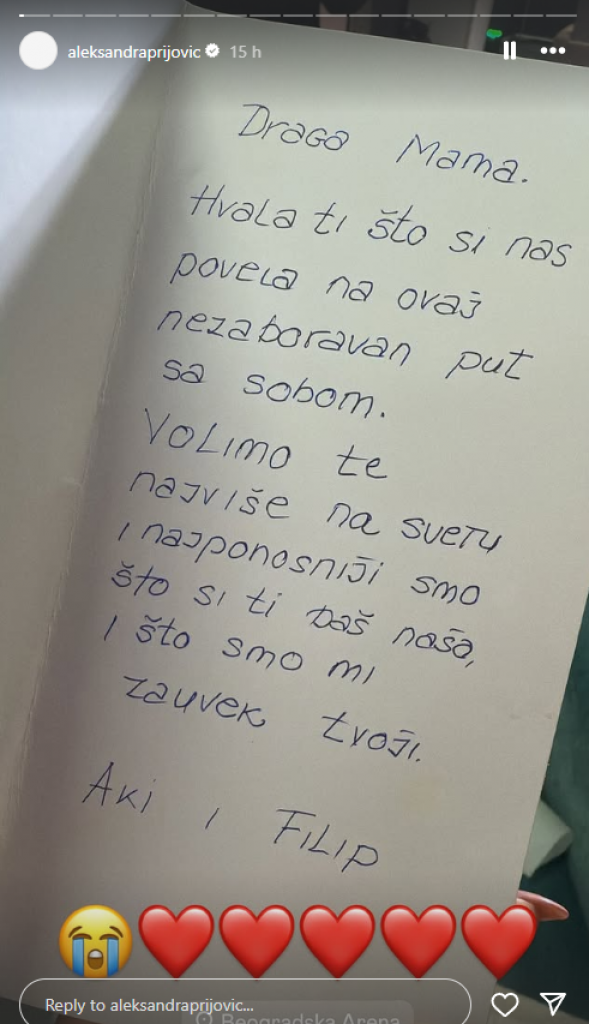 aleksandraprijovic 15 h
Draga Mama.
Hvala ti što si nas
povela na ovaj
nezaboravan put
sa sobom.
Volimo te
najviše na svetu
i najponosniji smo
što si ti baš naša,
i što smo mi
zauvek tvoji.
Aki i Filip
Reply to aleksandraprijovic...
Beogradska Arena